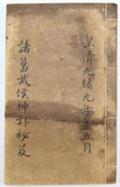 皇清光緒元年夏五月
諸葛武侯神卦秘笈